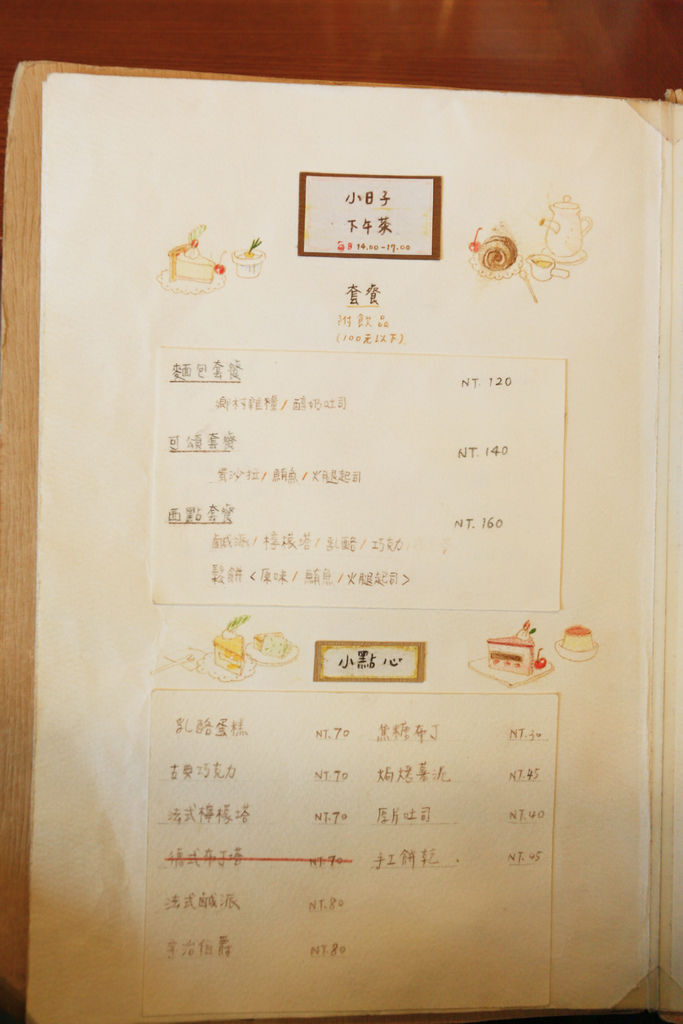 小日子
下午茶
每日 14:00-17:00
套餐
附飲品
(100元以下)
麵包套餐 NT. 120
鄉村雜糧 / 醇奶吐司
可頌套餐 NT. 140
蛋沙拉 / 鮪魚 / 火腿起司
西點套餐 NT. 160
鹹派 / 檸檬塔 / 乳酪 / 巧克力
鬆餅 <原味 / 鮪魚 / 火腿起司>
小點心
乳酪蛋糕 NT. 70 焦糖布丁 NT. 30
古典巧克力 NT. 70 焗烤薯泥 NT. 45
法式檸檬塔 NT. 70 厚片吐司 NT. 40
德式布丁塔 NT. 70 手工餅乾 NT. 45
法式鹹派 NT. 80
宇治伯爵 NT. 80